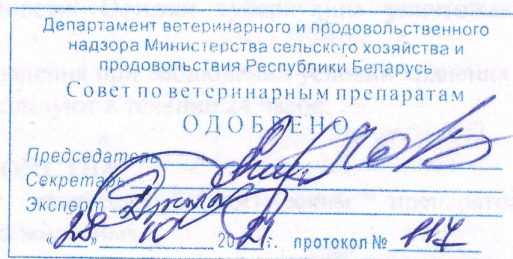 Департамент ветеринарного и продовольственного
надзора Министерства сельского хозяйства и
продовольствия Республики Беларусь
Совет по ветеринарным препаратам
ОДОБРЕНО
Председатель
Секретарь
Эксперт
«28» 10 2021г. протокол № 117